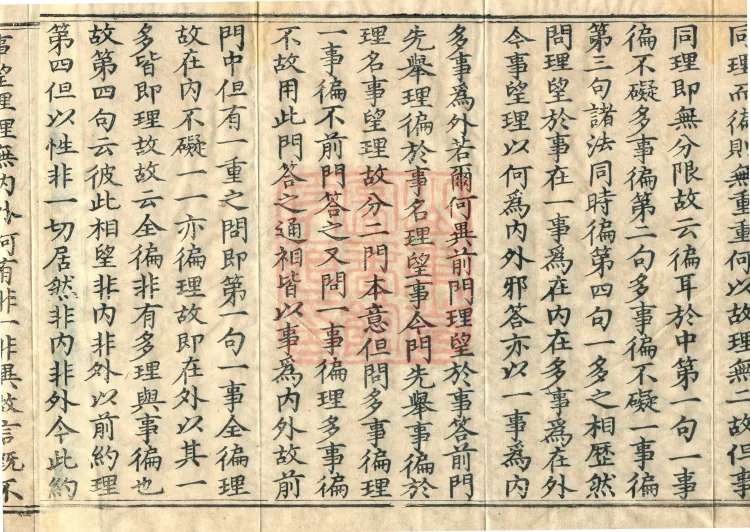 同理而徧則無重重何以故理無二故但事
同理即無分限故云徧耳於中第一句一事
徧不礙多事徧第二句多事徧不礙一事徧
第三句諸法同時徧第四句一多之相歷然
問理望於事在一事爲在內在多事爲在外
今事望理以何爲內外邪答亦以一事爲內
多事爲外若爾何異前門理望於事答前門
先舉理徧於事名理望事今門先舉事徧於
理名事望理故分二門本意但問多事徧理
一事徧不前門答之又問一事徧理多事徧
不故用此門答之通相皆以事爲內外故前
門中但有一重之問即第一句一事全徧理
故在內不礙一一亦徧理故即在外以其一
多皆即理故故云全徧非有多理與事徧也
故第四句云彼此相望非內非外以前約理
第四但以性非一切居然非內非外今此約
事望理理無內外何有非一非異故言旣不